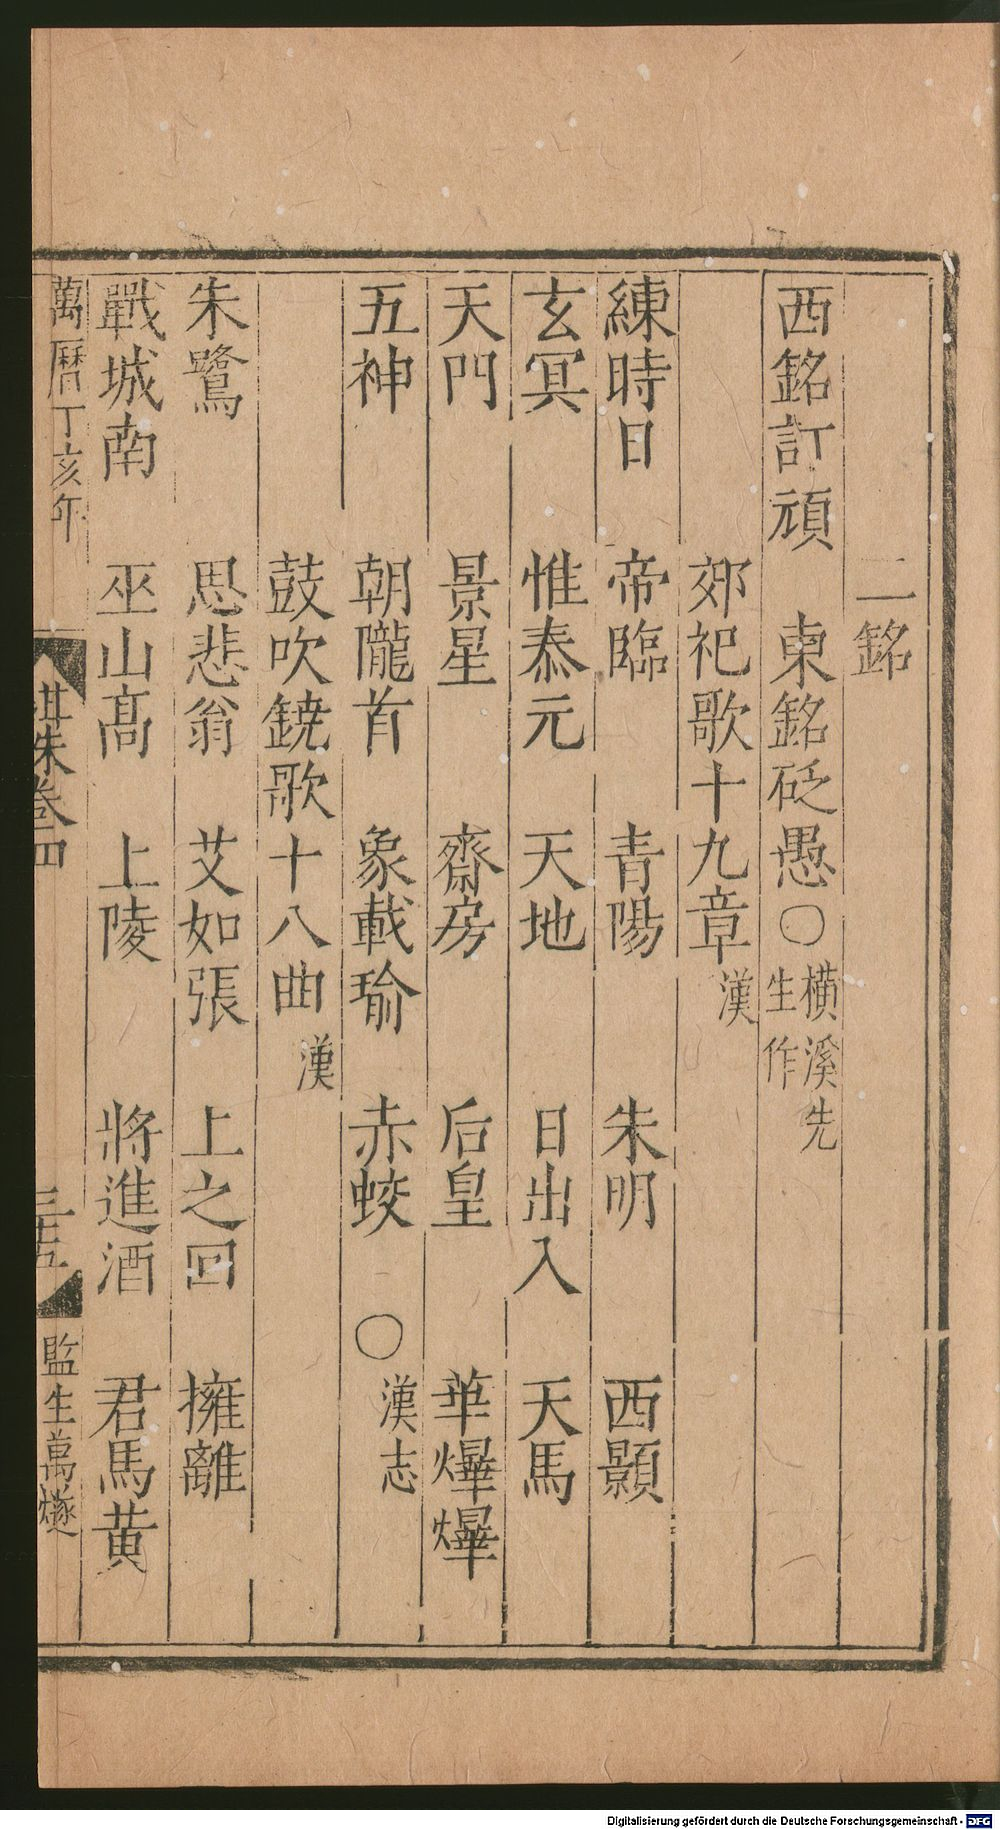 二銘
西銘訂頑 東銘砭愚〇橫溪先生作
郊祀歌十九章漢
練時日 帝臨 青陽 朱明 西顥
玄冥 惟泰元 天地 日出入 天馬
天門 景星 齋房 后皇 華爗爗
五神 朝隴首 象載瑜 赤蛟 〇漢志
鼓吹鐃歌十八曲漢
朱鷺 思悲翁 艾如張 上之回 擁離
戰城南 巫山高 上陵 將進酒 君馬黃
萬曆丁亥年 卷四 三十五 監生萬燧
Digitalisierung gefördert durch die Deutsche Forschungsgemeinschaft - DFG